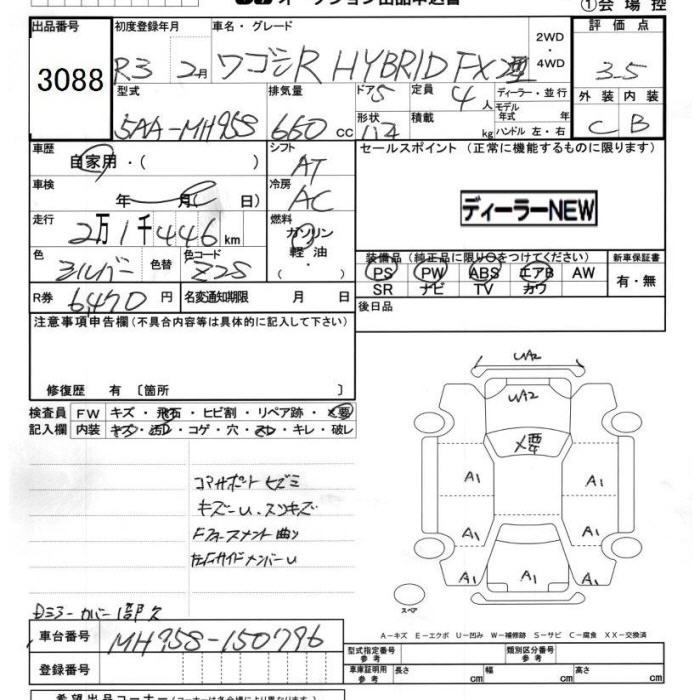 オークション出品申込書
①会場控
出品番号 初度登録年月 車名・グレード 2WD・4WD 評価点
3088 R3 2月 ワゴンR HYBRID FX 3.5
型式 排気量 ドア 5 定員 4人 ディーラー・並行 外装 内装
モデル年式 年
5AA-MH95S 660 cc 形状 積載 kg ハンドル 左・右 C B
車歴 シフト セールスポイント (正常に機能するものに限ります)
自家用・( ) AT
車検 冷房
年 月( 日) AC ディーラーNEW
走行 燃料
2万1千446km ガソリン
色 色替 色コード 軽油 装備品 (純正品に限り○をつけてください) 新車保証書
シルバー Z2S ・ PS PW ABS エアB AW 有・無
R券 6,470円 名変通知期限 月 日 SR ナビ TV カワ
注意事項申告欄 (不具合内容等は具体的に記入して下さい) 後日品
修復歴 有 〔箇所 〕
検査員 FW キズ・飛石・ヒビ割・リペア跡・X要
記入欄 内装 キズ・汚レ・コゲ・穴・スレ・キレ・破レ
UA2
UA2
X要
A1 A1
A1 A1
A1 A1 A1
コアサポートヒズミ
キズ一U、スリキズ
スペア
A-キズ E-エクボ U-凹み W-補修跡 S-サビ C-腐食 XX-交換済
車台番号 MH95S-150796 型式指定番号 参考 類別区分番号 参考
登録番号 車庫証明用 参考 長さ cm 幅 cm 高さ cm
希望出品コーナー